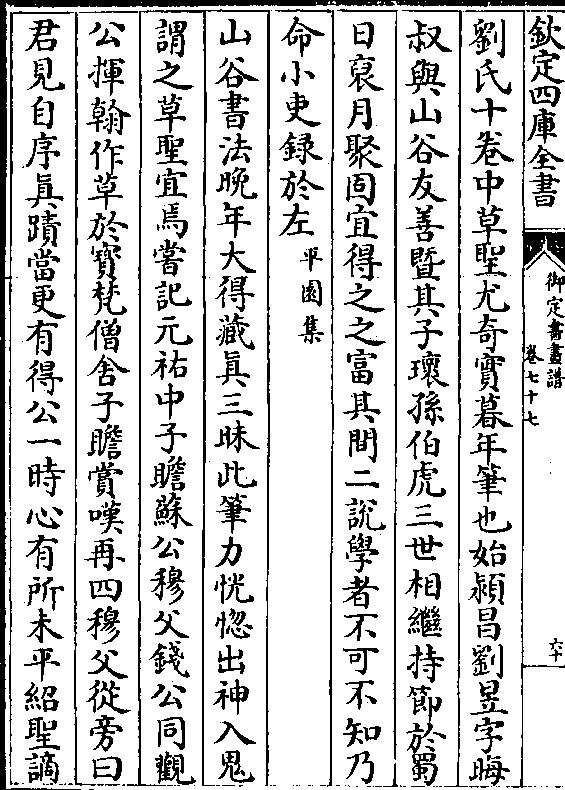 欽定四庫全書
御定書畫譜
卷七十七
六十
劉氏十卷中草聖尤奇實暮年筆也始潁昌劉昱字晦
叔與山谷友善暨其子瓌孫伯虎三世相繼持節於蜀
日裒月聚固宜得之之富其間二說學者不可不知乃
命小吏録於左平園集
山谷書法晚年大得藏眞三昧此筆力恍惚出神入鬼
謂之草聖宜焉嘗記元祐中子瞻蘇公穆父錢公同觀
公揮翰作草於寶梵僧舍子瞻賞嘆再四穆父從旁曰
君見自序眞蹟當更有得公一時心有所未平紹聖謫